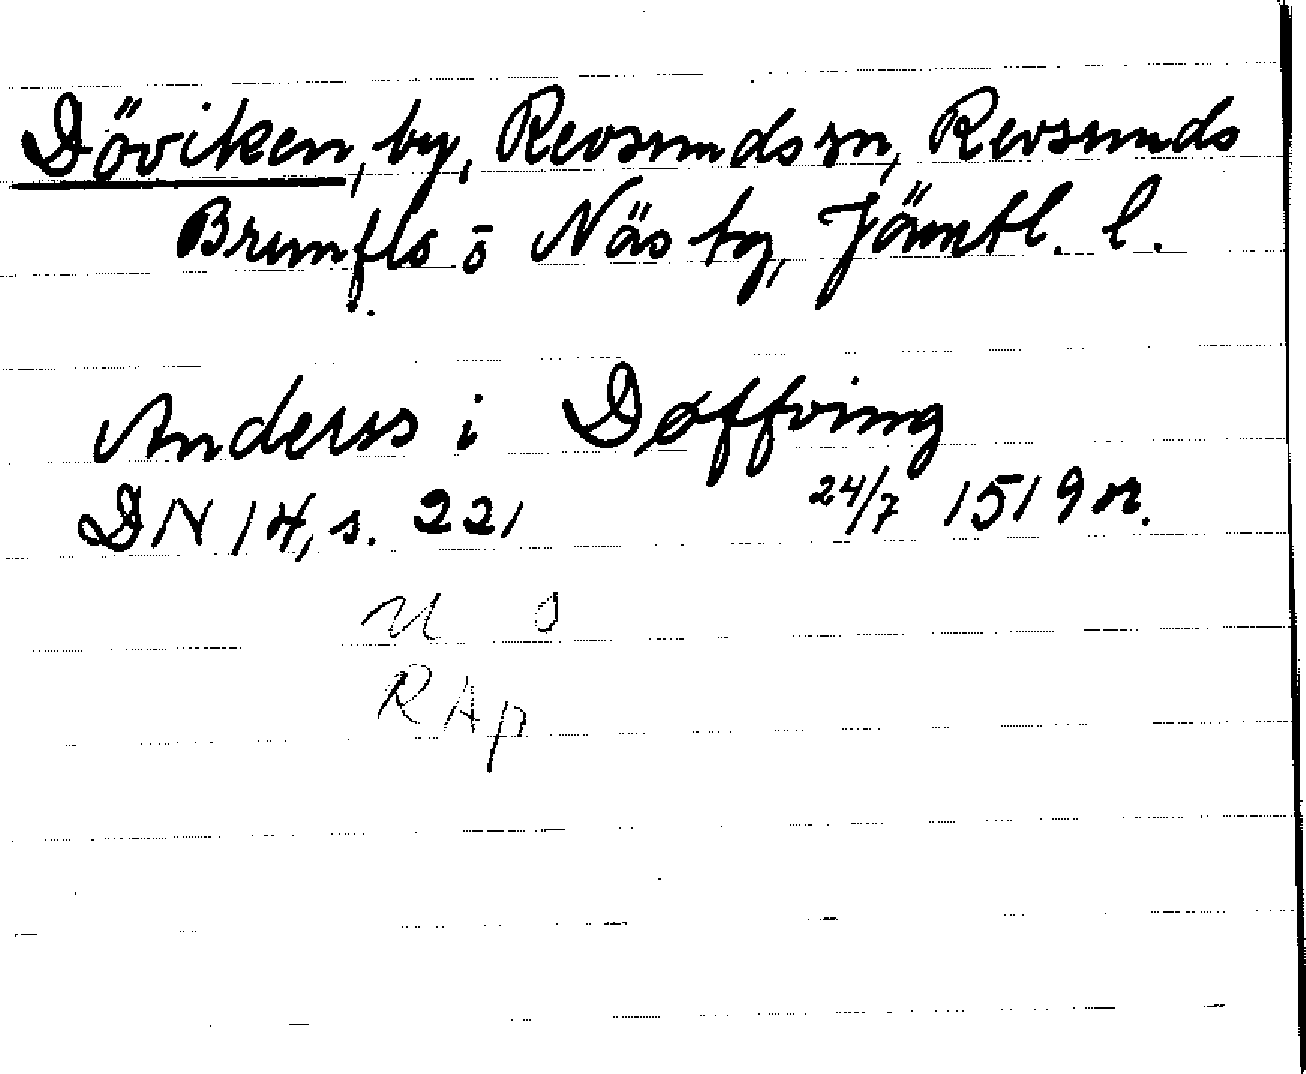 Döviken, by, Revsunds sn, Revsunds
Brunflo o Näs tg, Jämtl. l.
Anders i Døffving
DN 14, s. 221 24/7 1519 or.
U O
R Ap